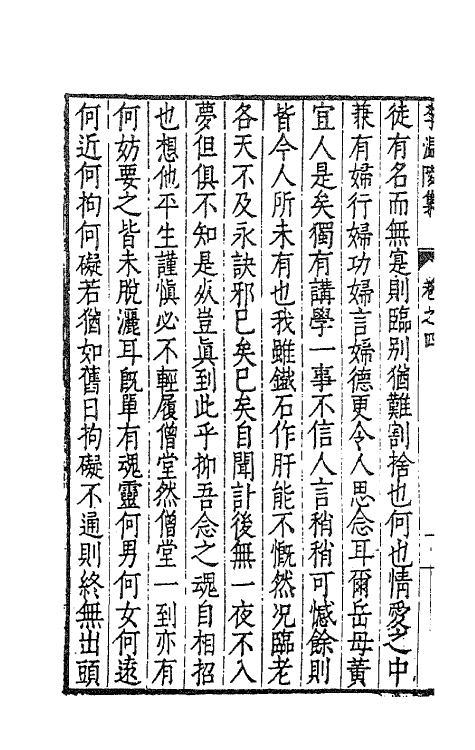 李溫陵集 卷之四
徒有名而無寔則臨别猶難割捨也何也情愛之中
兼有婦行婦功婦言婦德更令人思念耳爾岳母黄
宜人是矣獨有講學一事不信人言稍稍可憾餘則
皆今人所未有也我雖鐵石作肝能不慨然况臨老
各天不及永訣邪已矣已矣自聞訃後無一夜不入
夢但俱不知是死豈眞到此乎抑吾念之魂自相招
也想他平生謹慎必不輕履僧堂然僧堂一到亦有
何妨要之皆未脱灑耳旣單有魂靈何男何女何遠
何近何拘何礙若猶如舊日拘礙不通則終無出頭